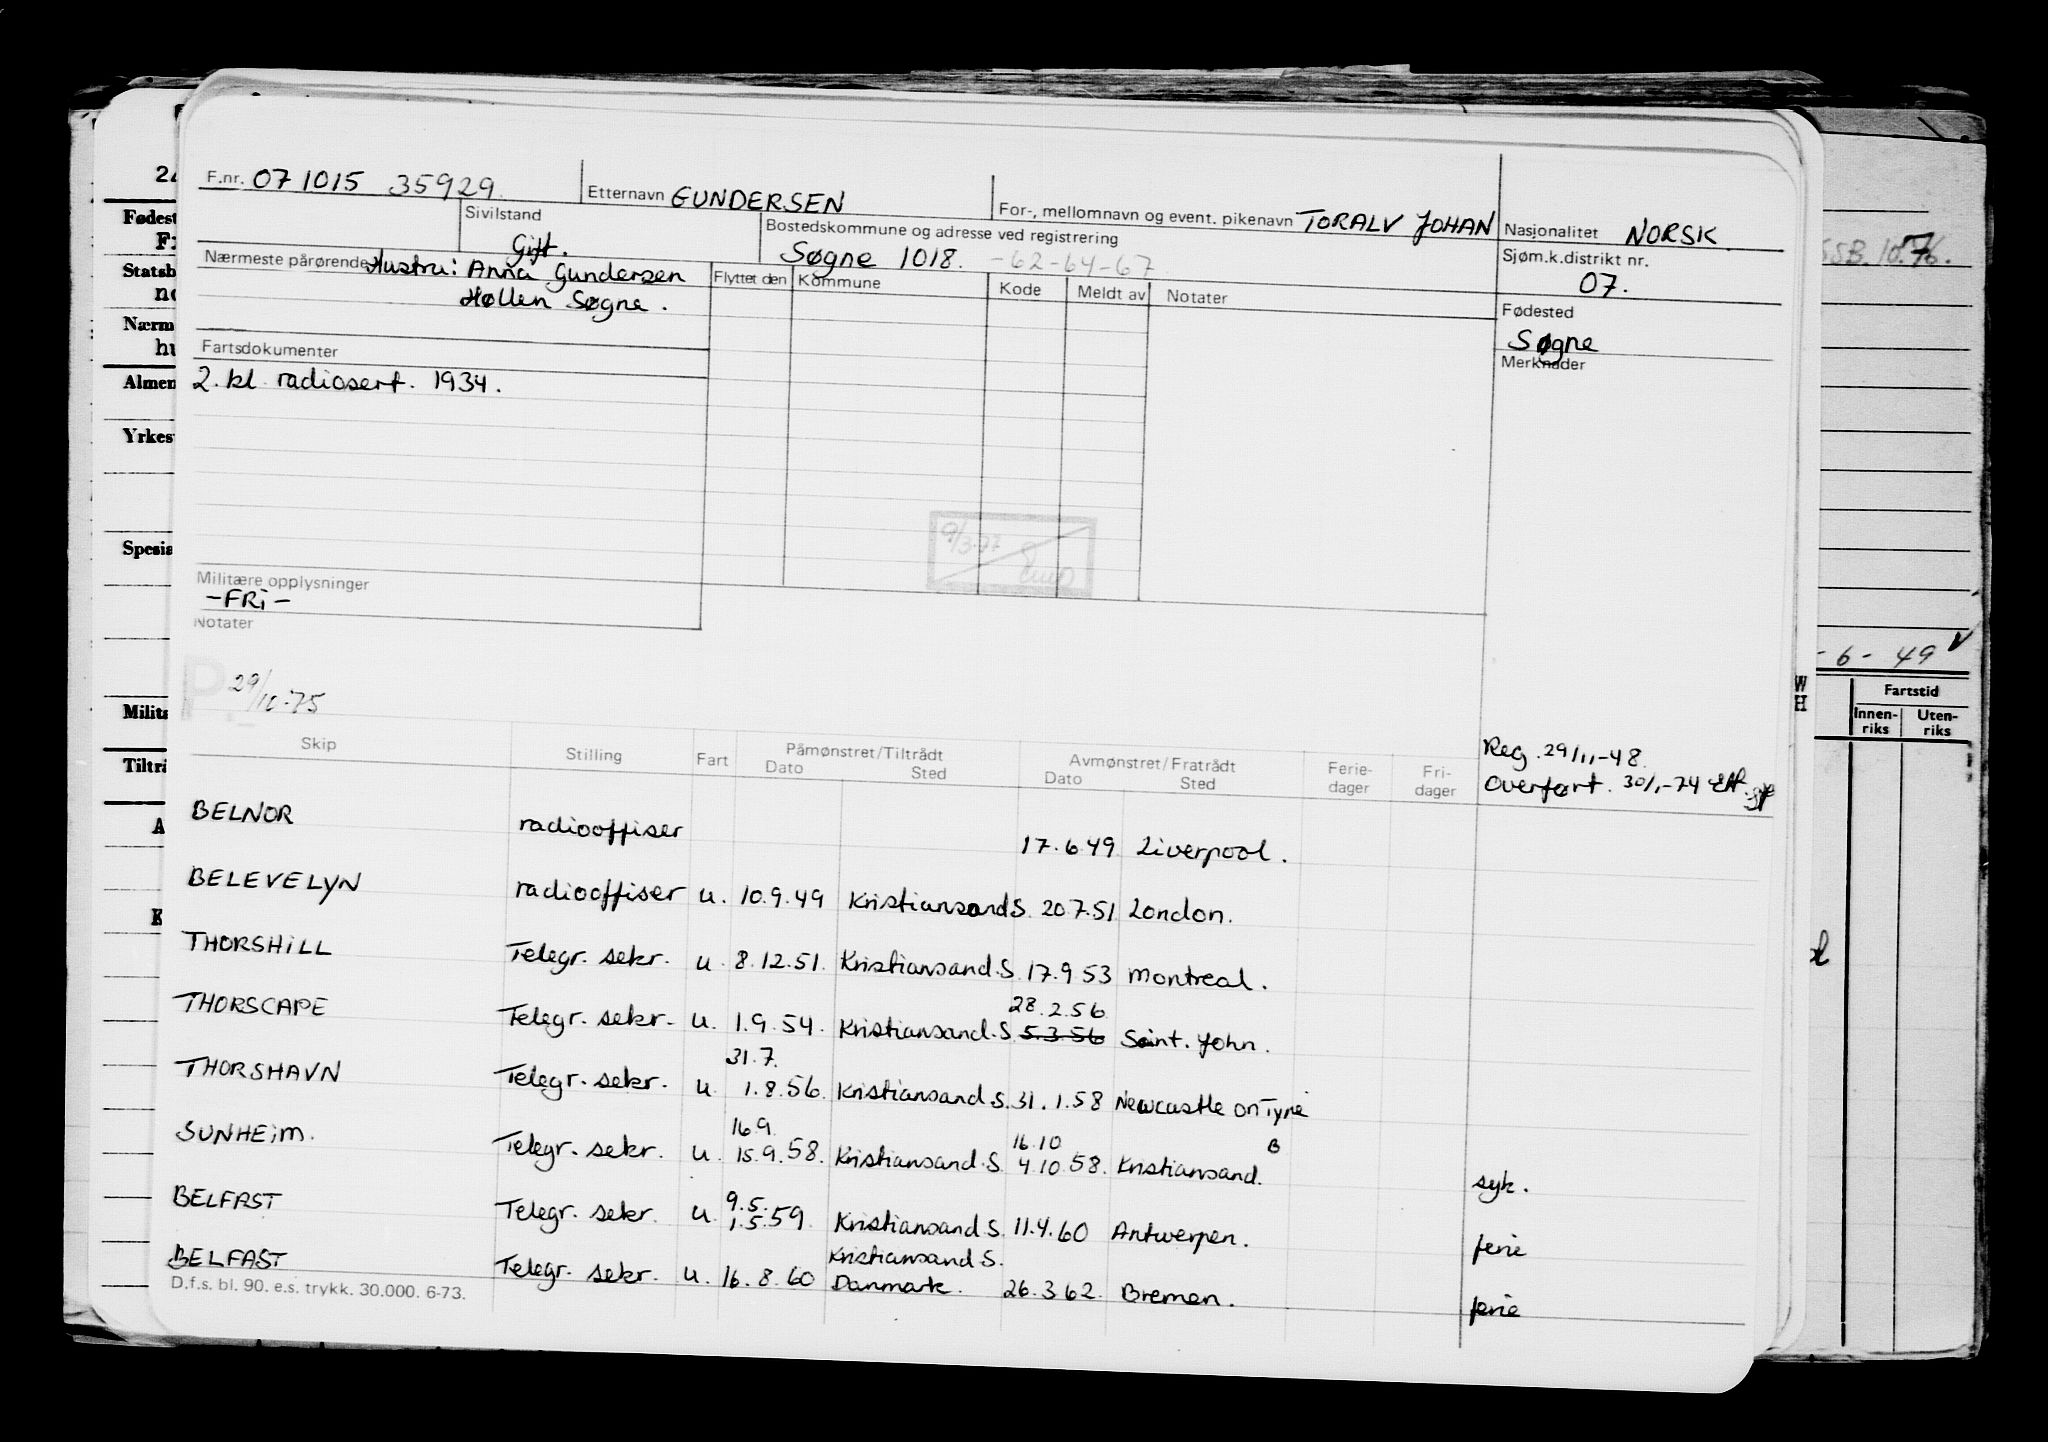 F.nr. 071015 35929
Etternavn GUNDERSEN
For-, mellomnavn og event. pikenavn TORALV JOHAN
Nasjonalitet NORSK
Sivilstand
Gift.
Bostedskommune og adresse ved registrering
Søgne 1018. -62-64-67
Sjøm.k.distrikt nr.
07.
Nærmeste pårørende Hustru: Anna Gundersen
Høllen Søgne.
Flyttet den Kommune Kode Meldt av Notater
Fødested
Søgne
Merknader
Fartsdokumenter
2. kl. radiosert. 1934.
9/3-77
Militære opplysninger
-FRi-
Notater
P. 29/10-75
Reg. 29/11-48.
Overført. 30/1-74
Skip Stilling Fart Påmønstret/Tiltrådt Avmønstret/Fratrådt Ferie- Fri-
Dato Sted Dato Sted dager dager
BELNOR radiooffiser 17.6.49 Liverpool.
BELEVELYN radiooffiser u. 10.9.49 Kristiansand S. 20.7.51 London.
THORSHILL Telegr. sekr. u 8.12.51. Kristiansand.S. 17.9.53 Montreal.
28.2.56
THORSCAPE Telegr. sekr. u. 1.9.54. Kristiansand.S. 5.3.56 Saint. John.
31.7.
THORSHAVN Telegr. sekr. u. 1.8.56. Kristiansand.S. 31.1.58 Newcastle on Tyne
16.9. 16.10 B
SUNHEIM. Telegr. sekr. u. 15.9.58. Kristiansand.S. 4.10.58. Kristiansand. syk.
9.5.
BELFAST Telegr. sekr. u. 1.5.59. Kristiansand S. 11.4.60 Antwerpen. ferie
Kristiansand S.
BELFAST Telegr. sekr. u. 16.8.60 Danmark. 26.3.62. Bremen. ferie
D.f.s. bl. 90. e.s. trykk. 30.000. 6-73.
Fødest
Statsb
Nærm
hu
Almen
Yrkes
Spesia
Milit
Tiltrå
10.76.
-6-49
W
H
Fartstid
Innen-
riks
Uten-
riks